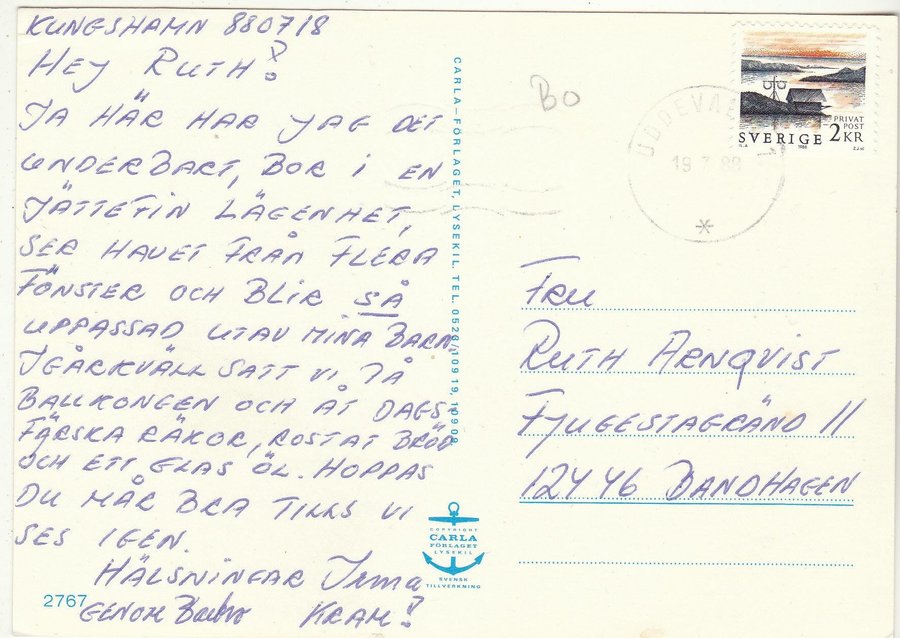 KUNGSHAMN 880718
HEY RUTH!
JA HÄR HAR JAG DET
UNDERBART, BOR I EN
JÄTTEFIN LÄGENHET,
SER HAVET FRÅN FLERA
FÖNSTER OCH BLIR SÅ
UPPASSAD UTAV MINA BARN.
IGÅRKVÄLL SATT VI PÅ
BALLKONGEN OCH ÅT DAGS-
FÄRSKA RÄKOR, ROSTAT BRÖD
OCH ETT GLAS ÖL. HOPPAS
DU MÅR BRA TILLS VI
SES IGEN.
HÄLSNINGAR Irma
GENOM KRAM!
2767
CARLA-FÖRLAGET, LYSEKIL. TEL. 0523/109 19, 109 09
COPYRIGHT
CARLA
FÖRLAGET
LYSEKIL
SVENSK
TILLVERKNING
BO
UDDEVALLA
19.7.88
PRIVAT
POST
SVERIGE 2KR
1988
FRU
RUTH ARNQVIST
FJUGESTAGRÄND 11
12446 BANDHAGEN